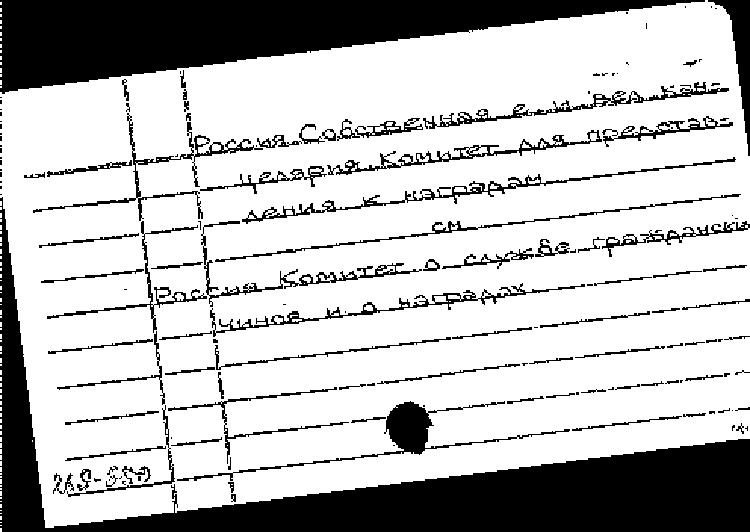 Россия. Собственная е. и. вел. кан-
целярия. Комитет для представ-
ления к наградам
см.
Россия. Комитет о службе гражданских
чинов и о наградах.